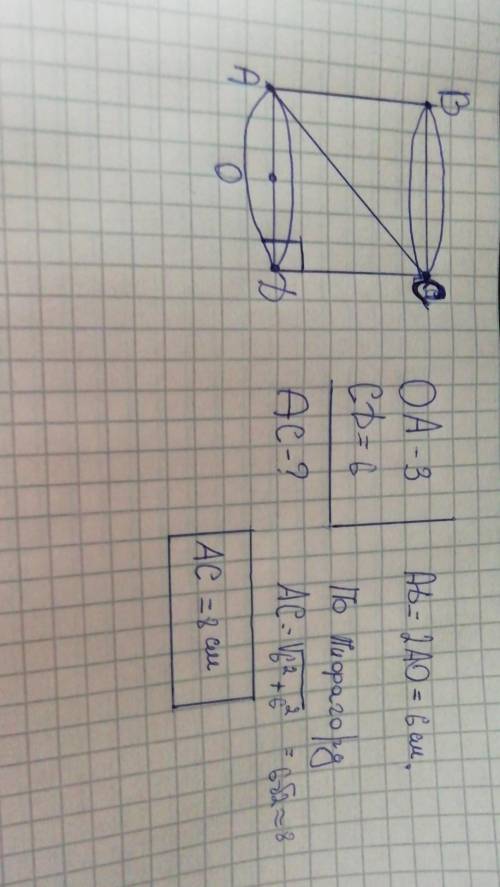 B
C
A
O
D
OA - 3
CD = 6
AC - ?
AD = 2AO = 6 см.
По Пифагору
AC = √6² + 6² = 6√2 ≈ 8
AC = 8 см